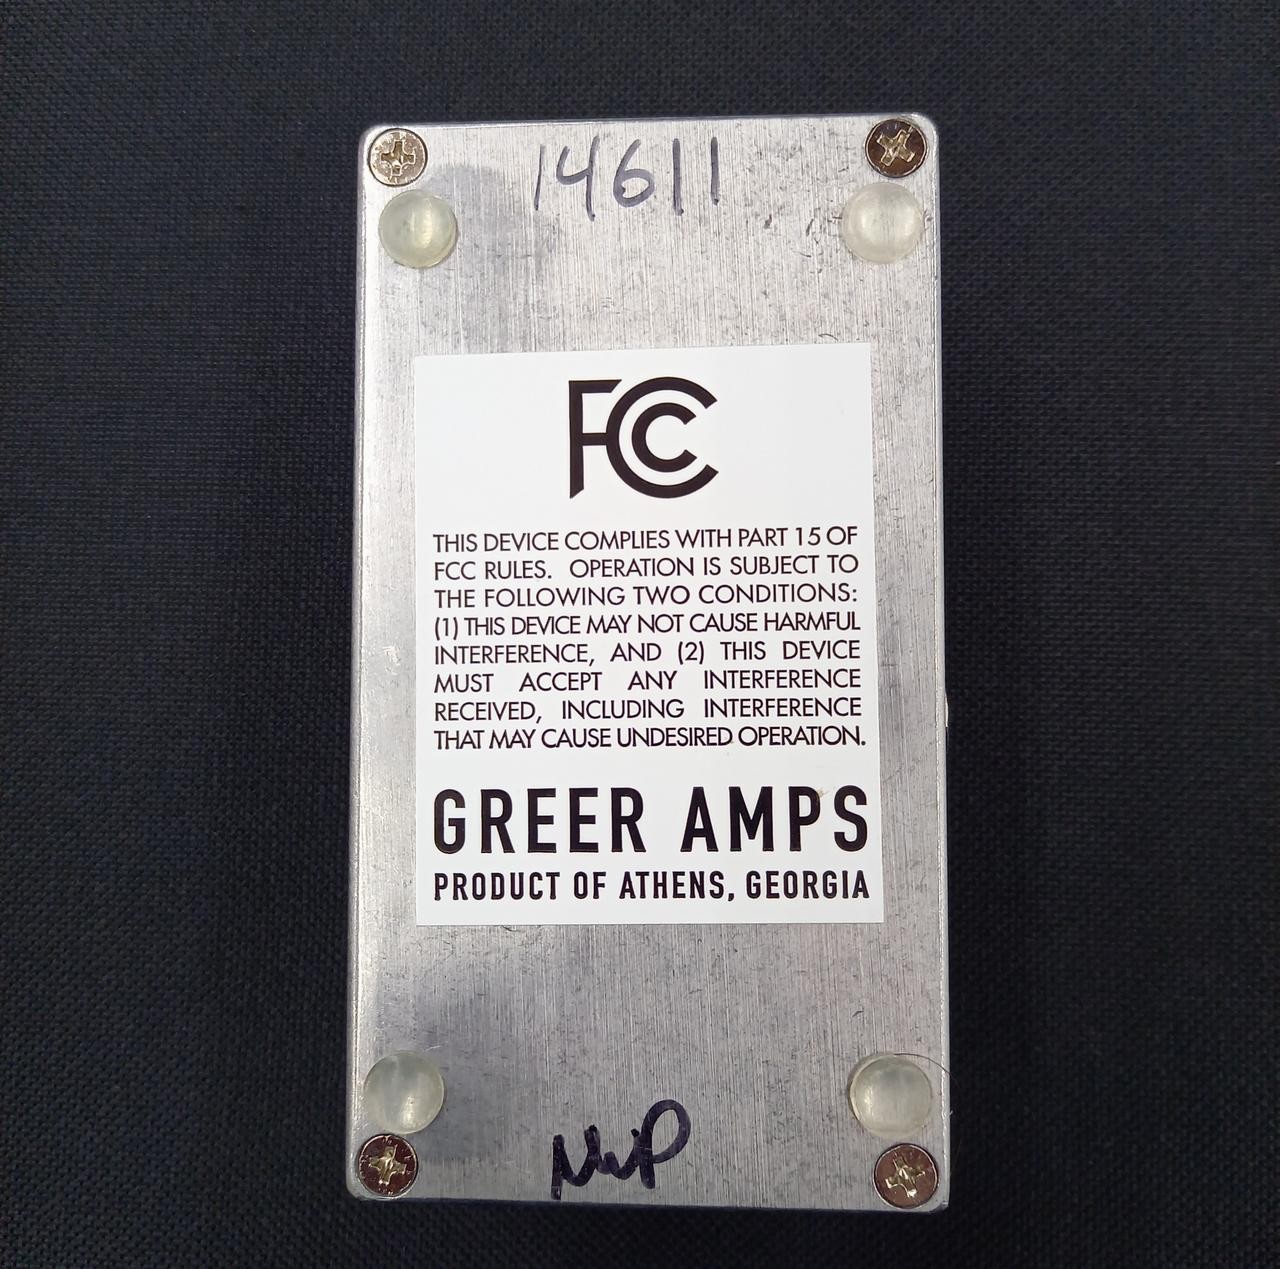 14611
FCC
THIS DEVICE COMPLIES WITH PART 15 OF
FCC RULES. OPERATION IS SUBJECT TO
THE FOLLOWING TWO CONDITIONS:
(1) THIS DEVICE MAY NOT CAUSE HARMFUL
INTERFERENCE, AND (2) THIS DEVICE
MUST ACCEPT ANY INTERFERENCE
RECEIVED, INCLUDING INTERFERENCE
THAT MAY CAUSE UNDESIRED OPERATION.
GREER AMPS
PRODUCT OF ATHENS, GEORGIA